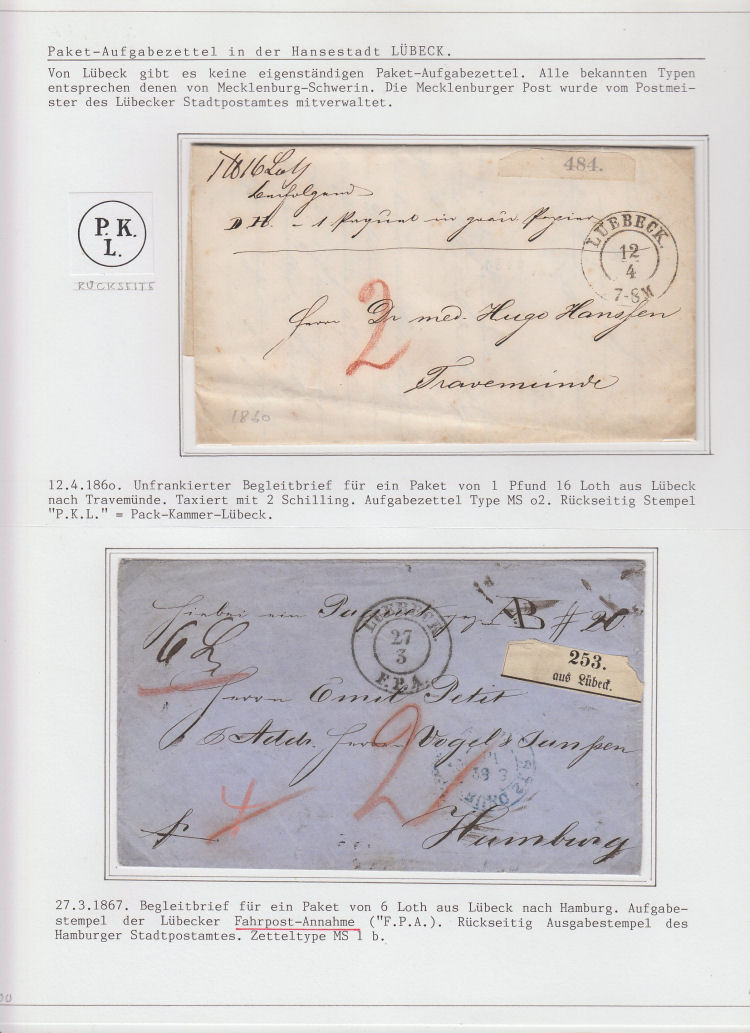 Paket-Aufgabezettel in der Hansestadt LÜBECK.
Von Lübeck gibt es keine eigenständigen Paket-Aufgabezettel. Alle bekannten Typen
entsprechen denen von Mecklenburg-Schwerin. Die Mecklenburger Post wurde vom Postmei-
ster des Lübecker Stadtpostamtes mitverwaltet.
16 Loth
484.
beifolgend
D.H. - 1 Paquet in grau Papier
LUEBECK.
12
4
7-8M
P. K.
L.
RÜCKSEITE
2
Herrn Dr med. Hugo Hanssen
Travemünde
1860
12.4.186o. Unfrankierter Begleitbrief für ein Paket von 1 Pfund 16 Loth aus Lübeck
nach Travemünde. Taxiert mit 2 Schilling. Aufgabezettel Type MS o2. Rückseitig Stempel
"P.K.L." = Pack-Kammer-Lübeck.
Hiebei ein B # 20.
LUEBECK.
27
3
F.P.A.
6 L
253.
aus Lübeck.
Herrn Emil Petit
Addr. Herrn Vogel & Janssen
2
4
Hamburg
27.3.1867. Begleitbrief für ein Paket von 6 Loth aus Lübeck nach Hamburg. Aufgabe-
stempel der Lübecker Fahrpost-Annahme ("F.P.A."). Rückseitig Ausgabestempel des
Hamburger Stadtpostamtes. Zetteltype MS 1 b.